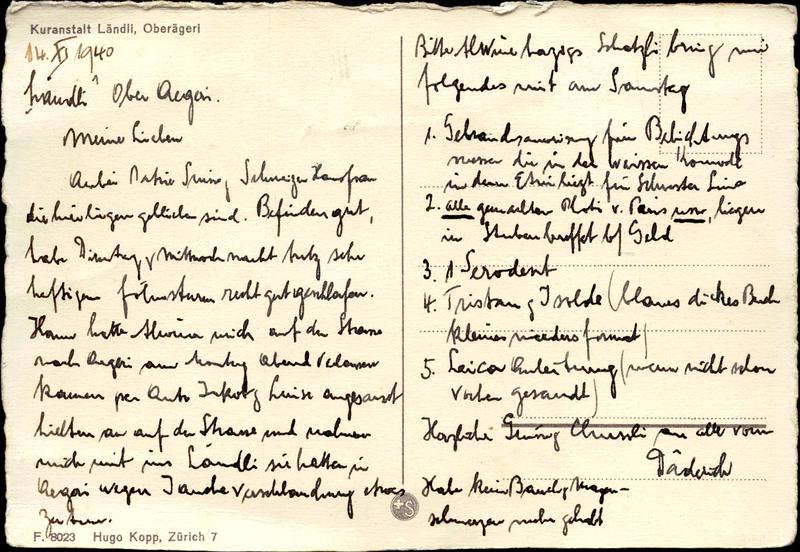 Kuranstalt Ländli, Oberägeri
14. XI 1940
Ländli Ober Aegeri.
Meine Lieben
Anbei
die hier liegen geblieben sind. Befinden gut,
habe Dienstag, Mittwoch nacht trotz sehr
heftigem Föhnsturm recht gut geschlafen.
Kaum hatte Alwine mich auf der Strasse
nach Aegeri am Montag Abend verlassen
kamen per Auto Luise angesaust
hielten an auf der Strasse und nahmen
mich mit ins Ländli sie hatten in
Aegeri wegen Verschandlung etwas
zu tun.
F. 8023 Hugo Kopp, Zürich 7
Bitte Alwine Schatzli bring mir
folgendes mit am Samstag
1. Gebrauchsanweisung für Belichtungs
messer die in der weissen Komode
in dem Etui liegt für Schwester Lina
2. alle gemachten Photi v. Paris nur, liegen
in Stubenbuffet bf Geld
3. 1 Serodent
4. Tristan u Isolde (blaues dickes Buch
kleines niederes format)
5. Leica Anleitung (wenn nicht schon
vorher gesandt)
Herzliche Grüsse an alle vom
Däderich
Habe kein Bauch, Magen-
schmerzen mehr gehabt